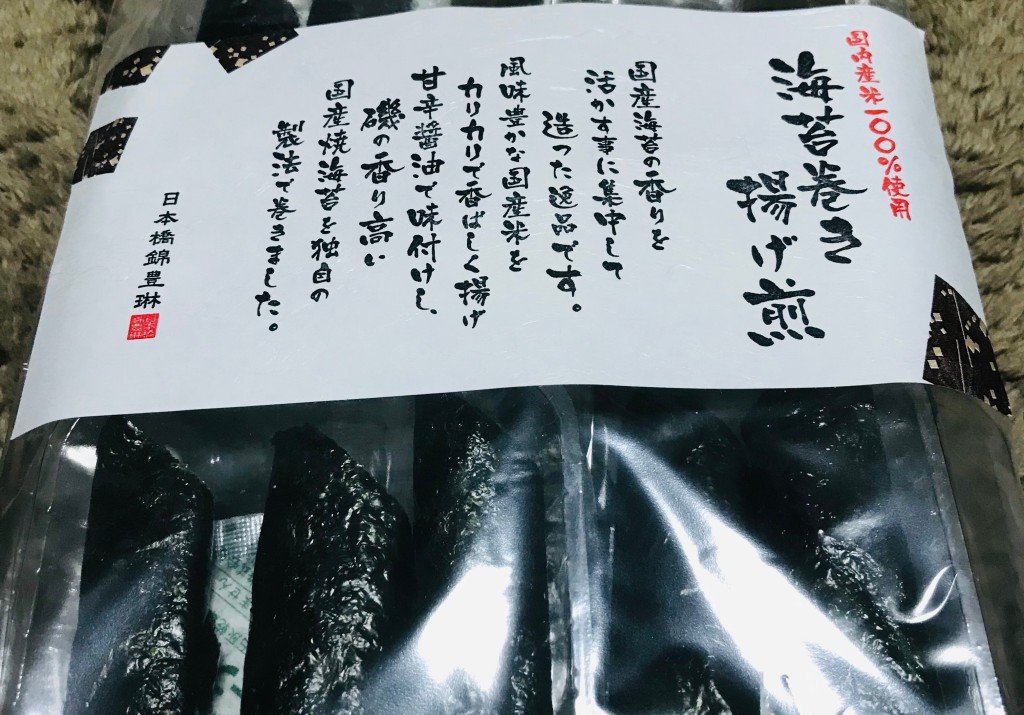 国内産米一〇〇%使用
海苔巻き
揚げ煎
国産海苔の香りを
活かす事に集中して
造った逸品です。
風味豊かな国産米を
カリカリで香ばしく揚げ
甘辛醤油で味付けし、
磯の香り高い
国産焼海苔を独自の
製法で巻きました。
日本橋錦豊琳